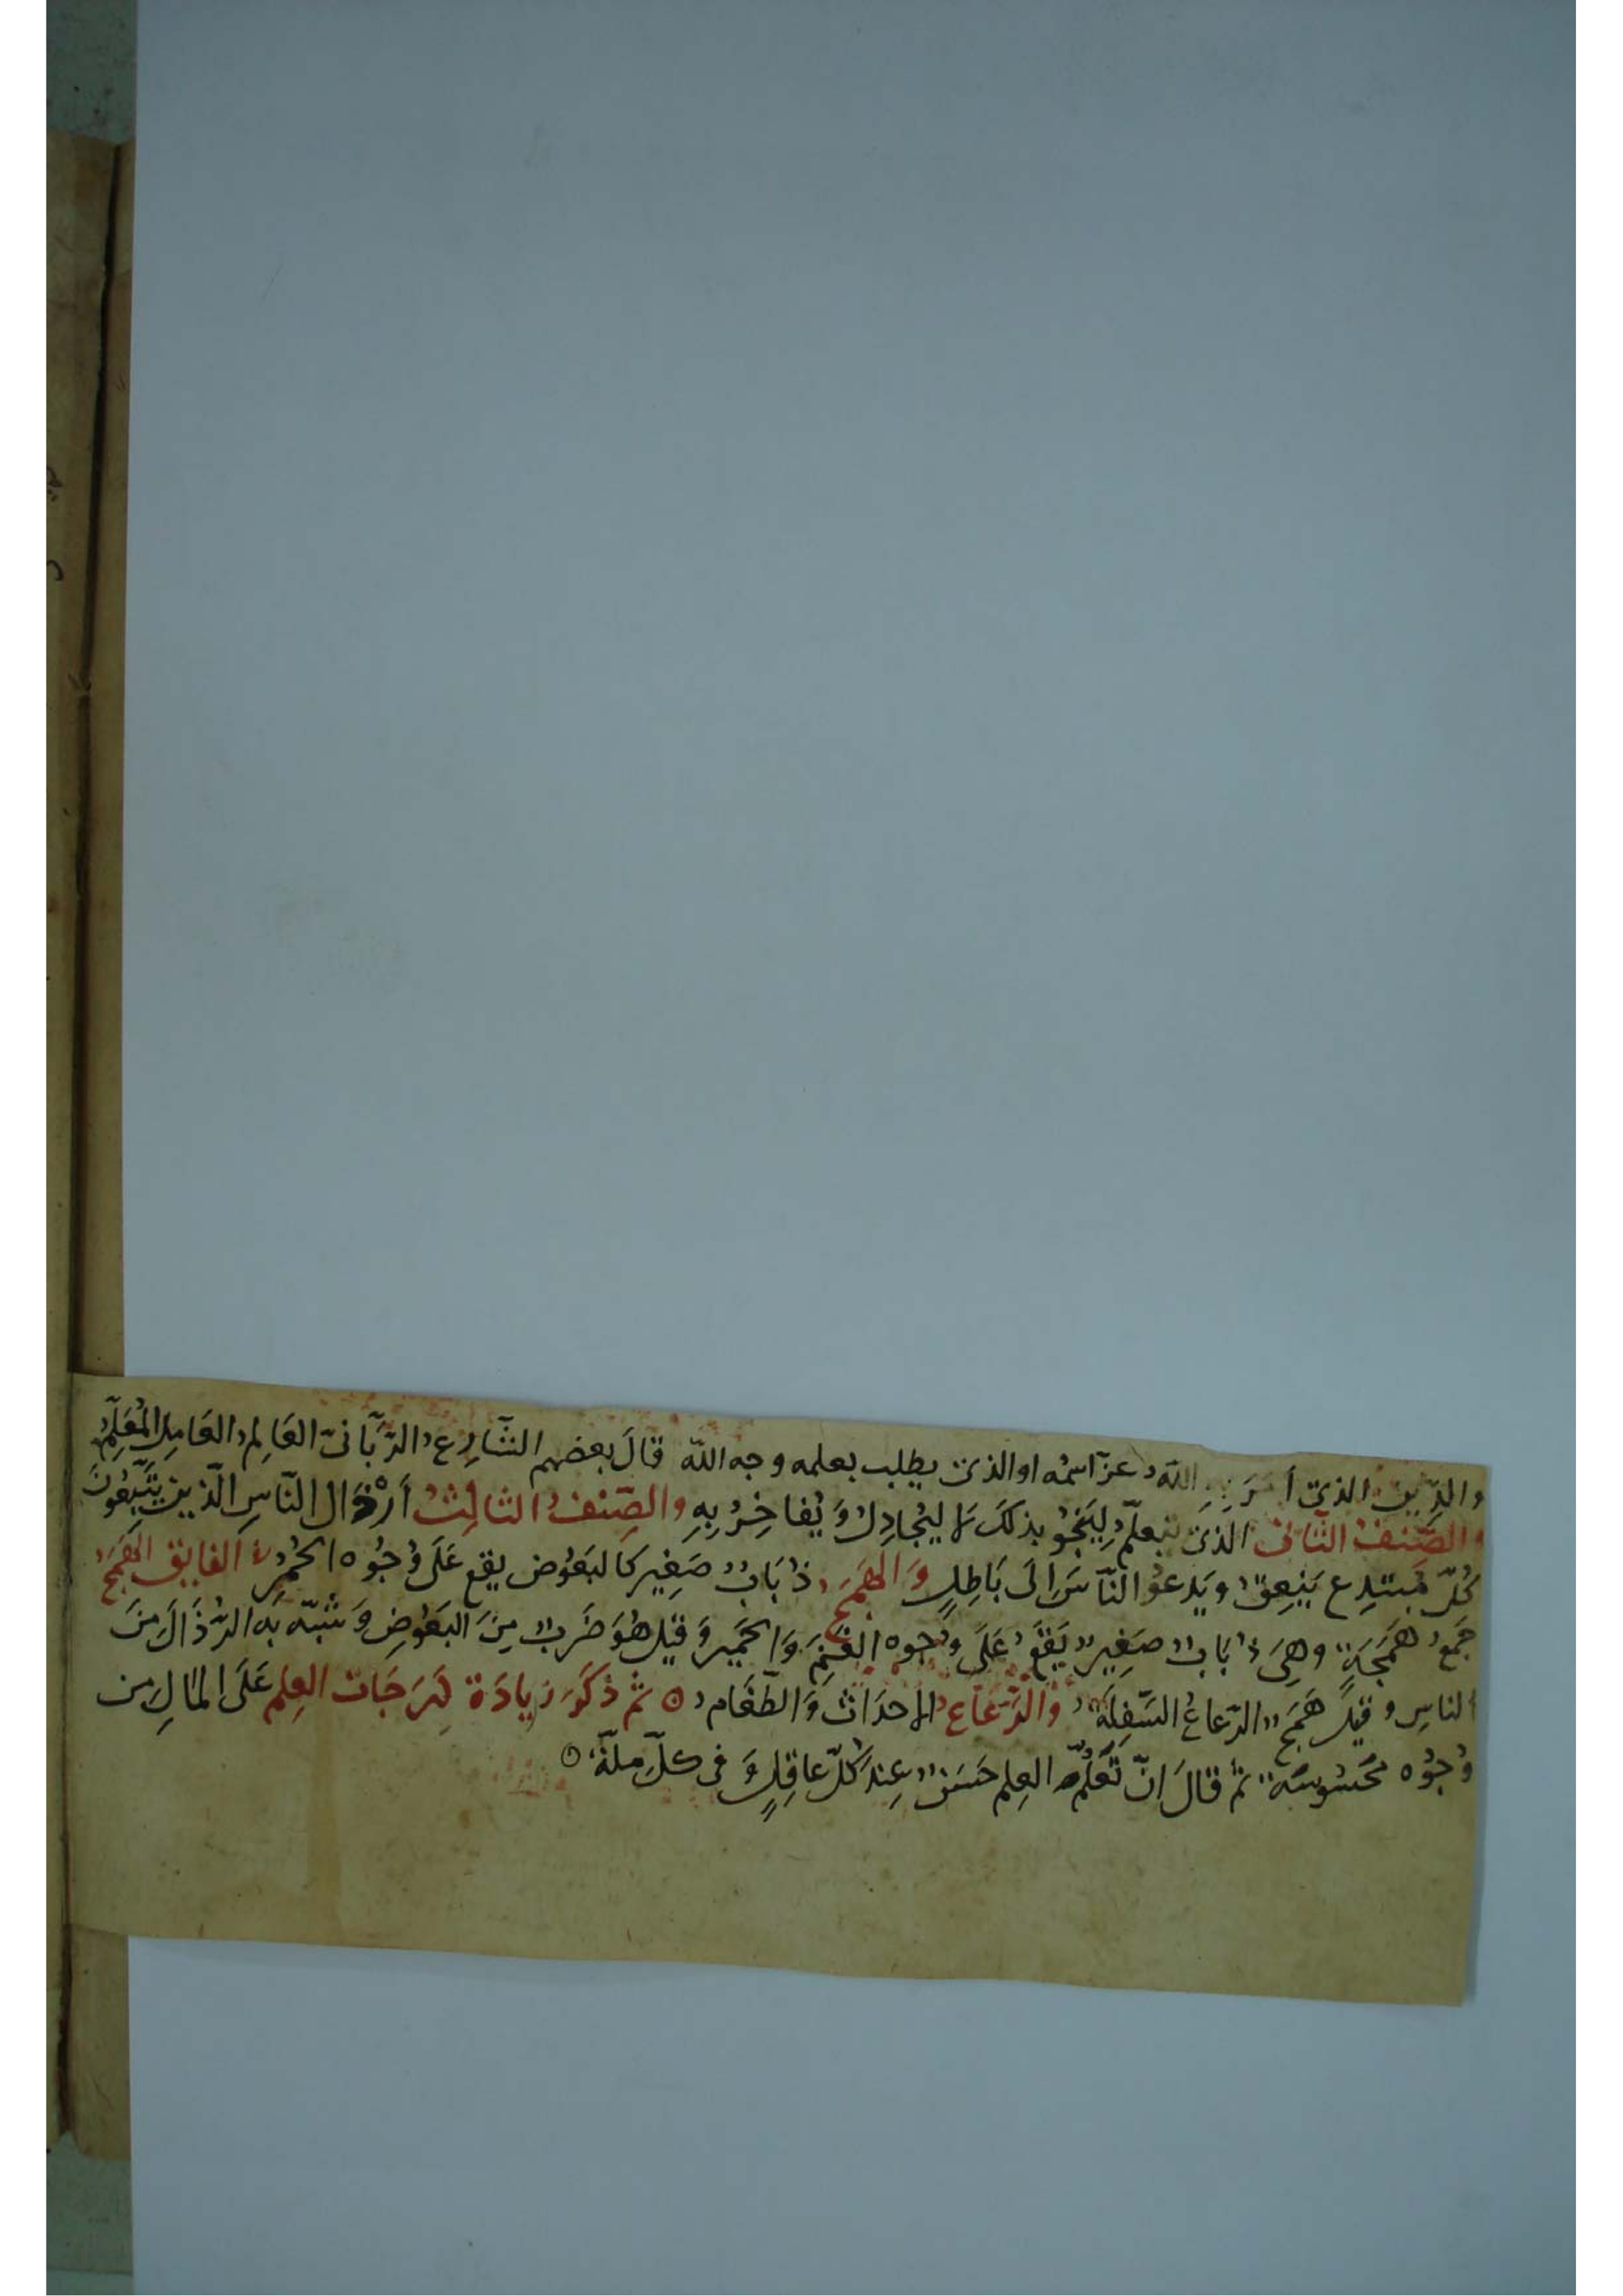 والدين الذي أمر به الله عزّ اسمُه او الذي يطلب بعلمه وجه الله قالَ بعضهم الشّارِع الرّبّانىّ العَالِم العَامِل المُعَلِّم
والصِّنفُ الثّانى الذى تعلّم لِيَنجُو بذلكَ لا ليُجادِلَ وَيُفاخِرُ بِهِ والصِّنفُ الثالِثُ أرْذال النّاسِ الّذين يَتَّبِعُونَ
كُلّ مُبتدِع يَنعِق ويَدعُو النّاسَ الَى بَاطِلٍ وَالهَمَج ذُبَابٌ صَغِير كالبَعُوض يقع عَلَى وُجُوه الحُمُرِ الفايق الهَمَج
جَمعُ هَمَجَةٍ وهِىَ ذُبَابٌ صَغِيرٌ يَقَعُ عَلَى وُجوه الغَنَمِ وَالحَمِير وَقيل هُوَ ضَربٌ مِنَ البَعُوضِ وَشبّه به الرُّذَالَ مِنَ
الناسِ وقيلَ هَمَجٌ الرّعاعُ السَّفِلَةُ وَالرَّعَاع الاحدَاثُ وَالطّغَام ۞ ثم ذكَرَ زيادَة دَرَجَات العِلم عَلَى المَالِ من
وُجُوه مَحسُوسَة ثم قالَ انّ تَعَلُّم العِلم حَسَنٌ عِندَ كُلّ عاقِلٍ وَفى كلّ مِلّة ۞